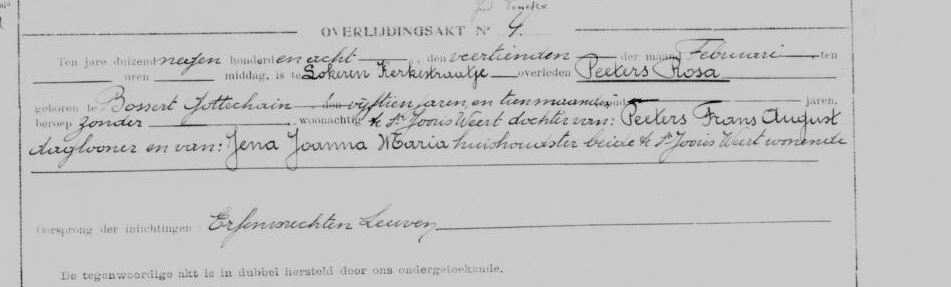 OVERLIJDINGSAKT Nr 4.
Ten jare duizend negen honderd en acht, den veertienden der maand Februari ten
uren middag, is te Lokeren Kerkstraatje overleden Peeters Rosa
geboren te Bossert Gottechain vijftien jaren en tien maanden jaren,
beroep zonder, woonachtig te St Jooris Weert dochter van: Peeters Frans August
daglooner en van: Jena Joanna Maria huishoudster beide te St Jooris Weert wonende
Oorsprong der inlichtingen: Erfenisrechten Leuven
De tegenwoordige akt is in dubbel hersteld door ons ondergeteekende.